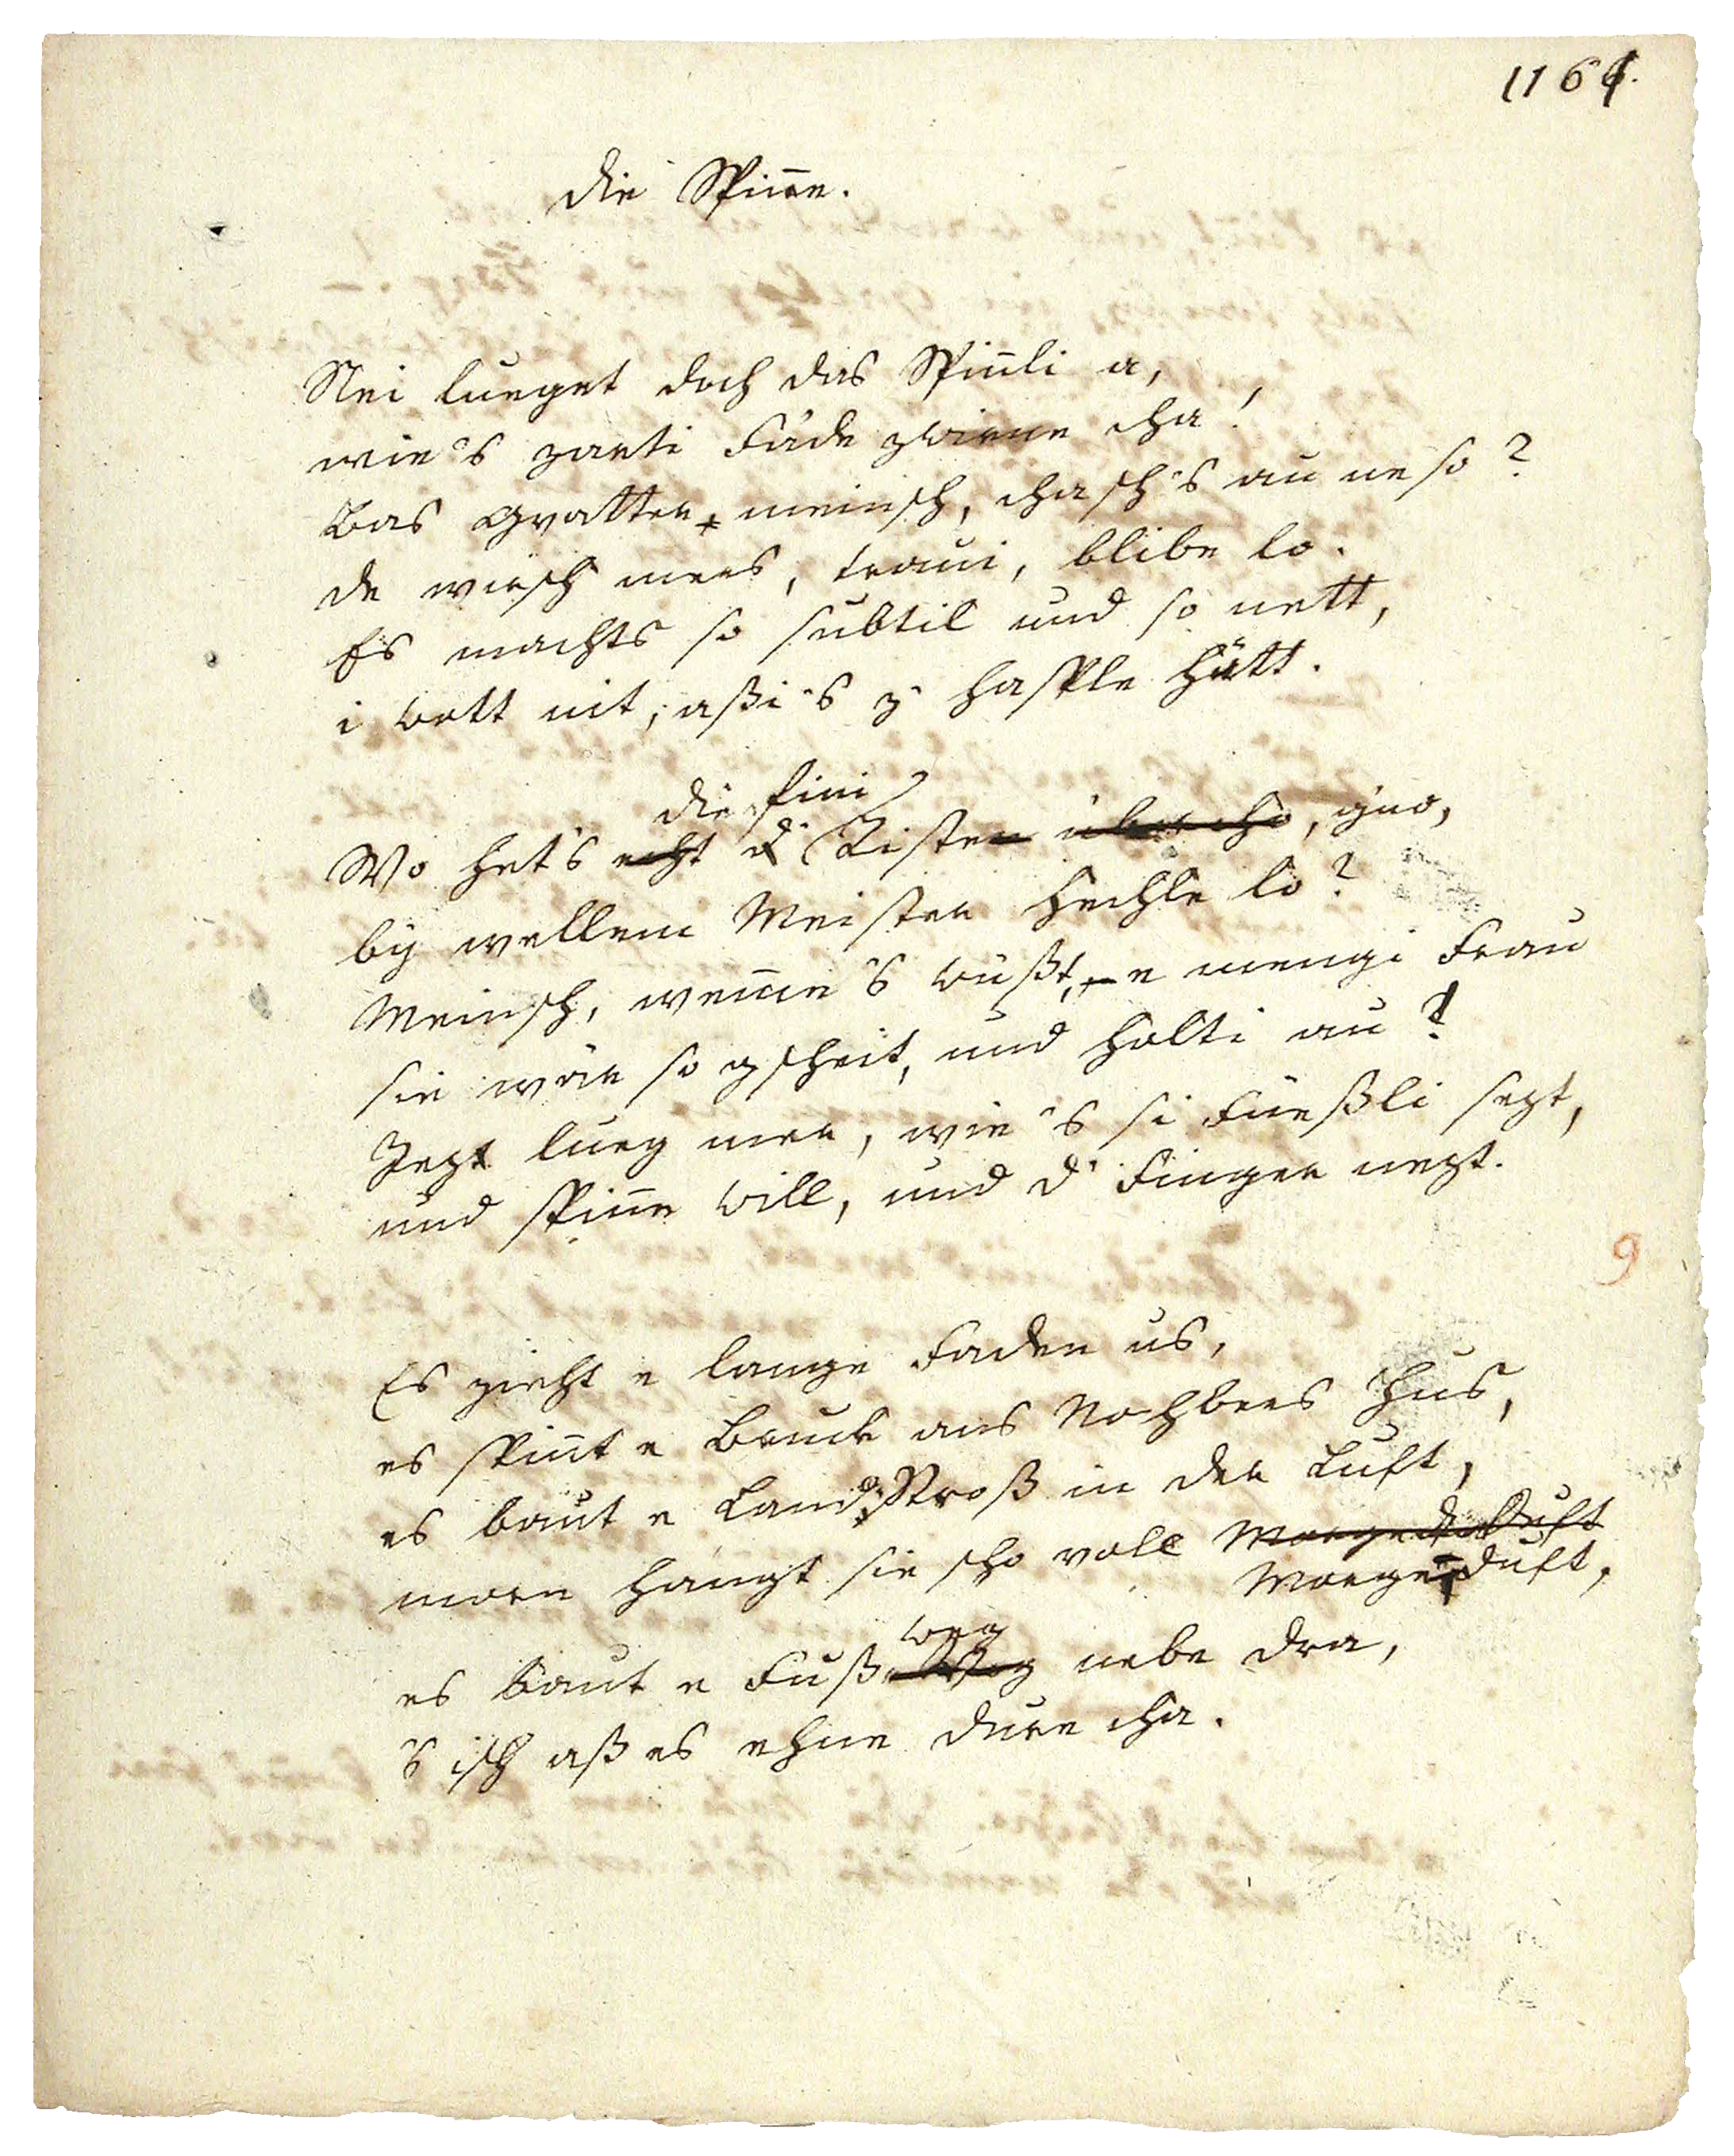 1161.
Die Spinne.
Nei lueget doch das Spinnli a,
wie's zarti Fäde zwirne cha!
Bas Gvatter meinsch, chasch's au ne so?
de wirsch mers, traui, blibe lo.
Es machts so subtil und so nett,
i wott nit, aßi's z' hasple hätt.
die fini
Wo het's echt d' Riste übercho, gno,
by wellem Meister hechle lo?
Meinsch, wemme's wüßt, e mengi Frau
sie wär so gscheit, und holti au?
Jezt lueg mer, wie 's si Füeßli sezt,
und spinne will, und d' Finger nezt.
9
Es zieht e lange Faden us,
es spinnt e Bruck ans Nochbers Hus,
es baut e LandStroß in der Luft,
morn hangt sie scho voll Morgeduft
Morgeduft,
weg
es baut e Fußweg nebe dra,
's isch aß es ehne dure cha.